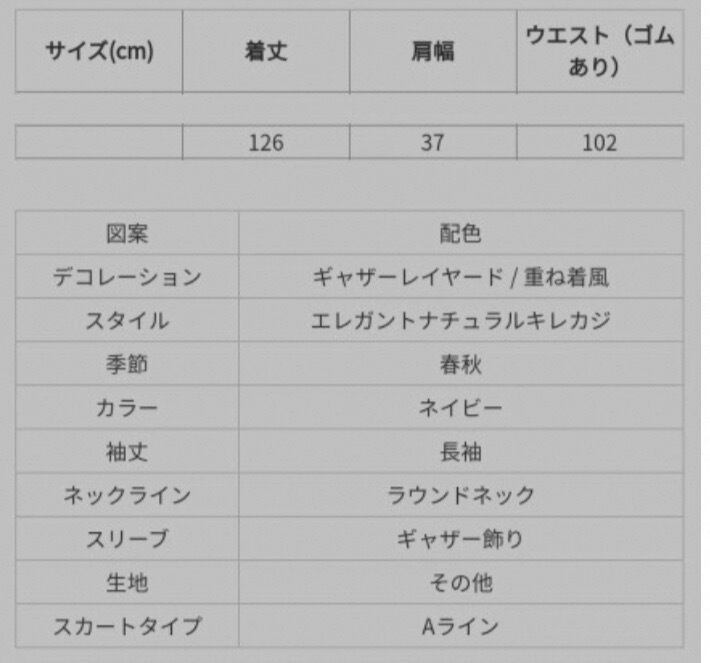 サイズ(cm) 着丈 肩幅 ウエスト（ゴム
あり）
126 37 102
図案 配色
デコレーション ギャザーレイヤード / 重ね着風
スタイル エレガントナチュラルキレカジ
季節 春秋
カラー ネイビー
袖丈 長袖
ネックライン ラウンドネック
スリーブ ギャザー飾り
生地 その他
スカートタイプ Aライン